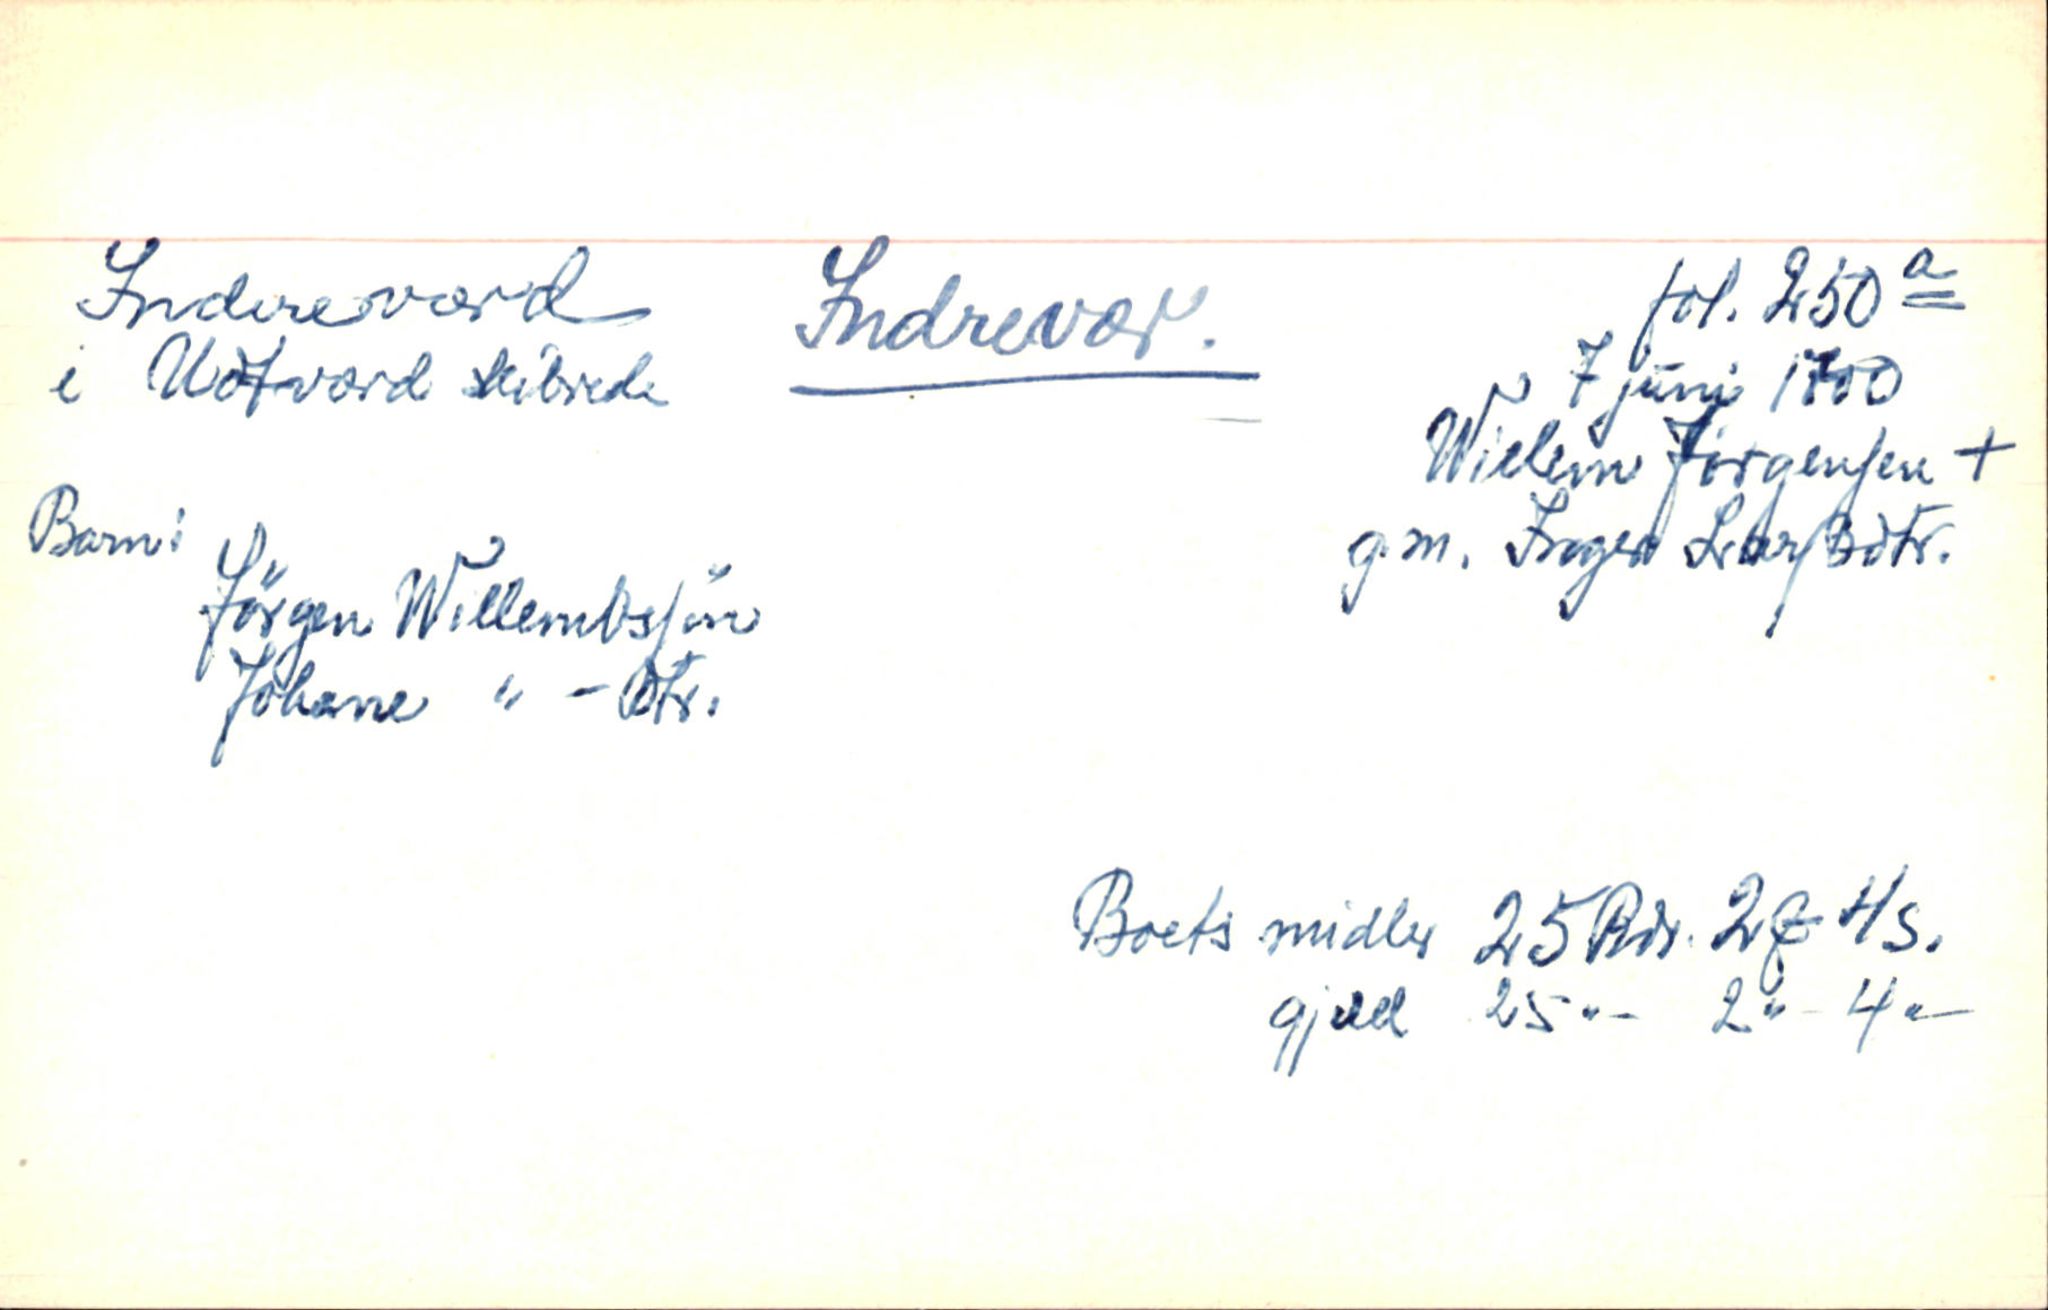 Indereværd
i Udtværd skibrede
Indrevær.
fol. 250 a
7 juni 1700
Willem Jörgensen +
g.m. Inger Larsdtr.
Barn:
Jörgen Willembssön
Johane " - Dtr.
Boets midler 25 Rdr. 2 4 s.
gjeld 25 " - 2 " - 4 " -